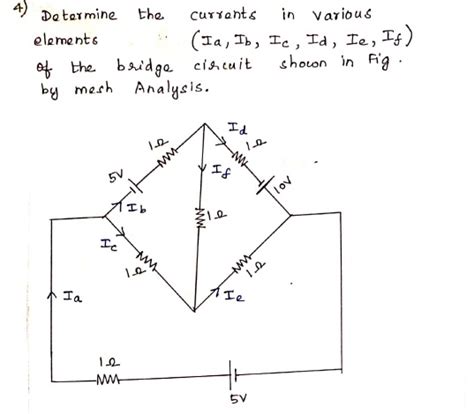 4) Determine the currents in various
elements (Ia, Ib, Ic, Id, Ie, If)
of the bridge circuit shown in Fig.
by mesh Analysis.
Id
1Ω 1Ω
5V If 10V
Ib 1Ω
Ic
1Ω 1Ω
Ia Ie
1Ω
5V